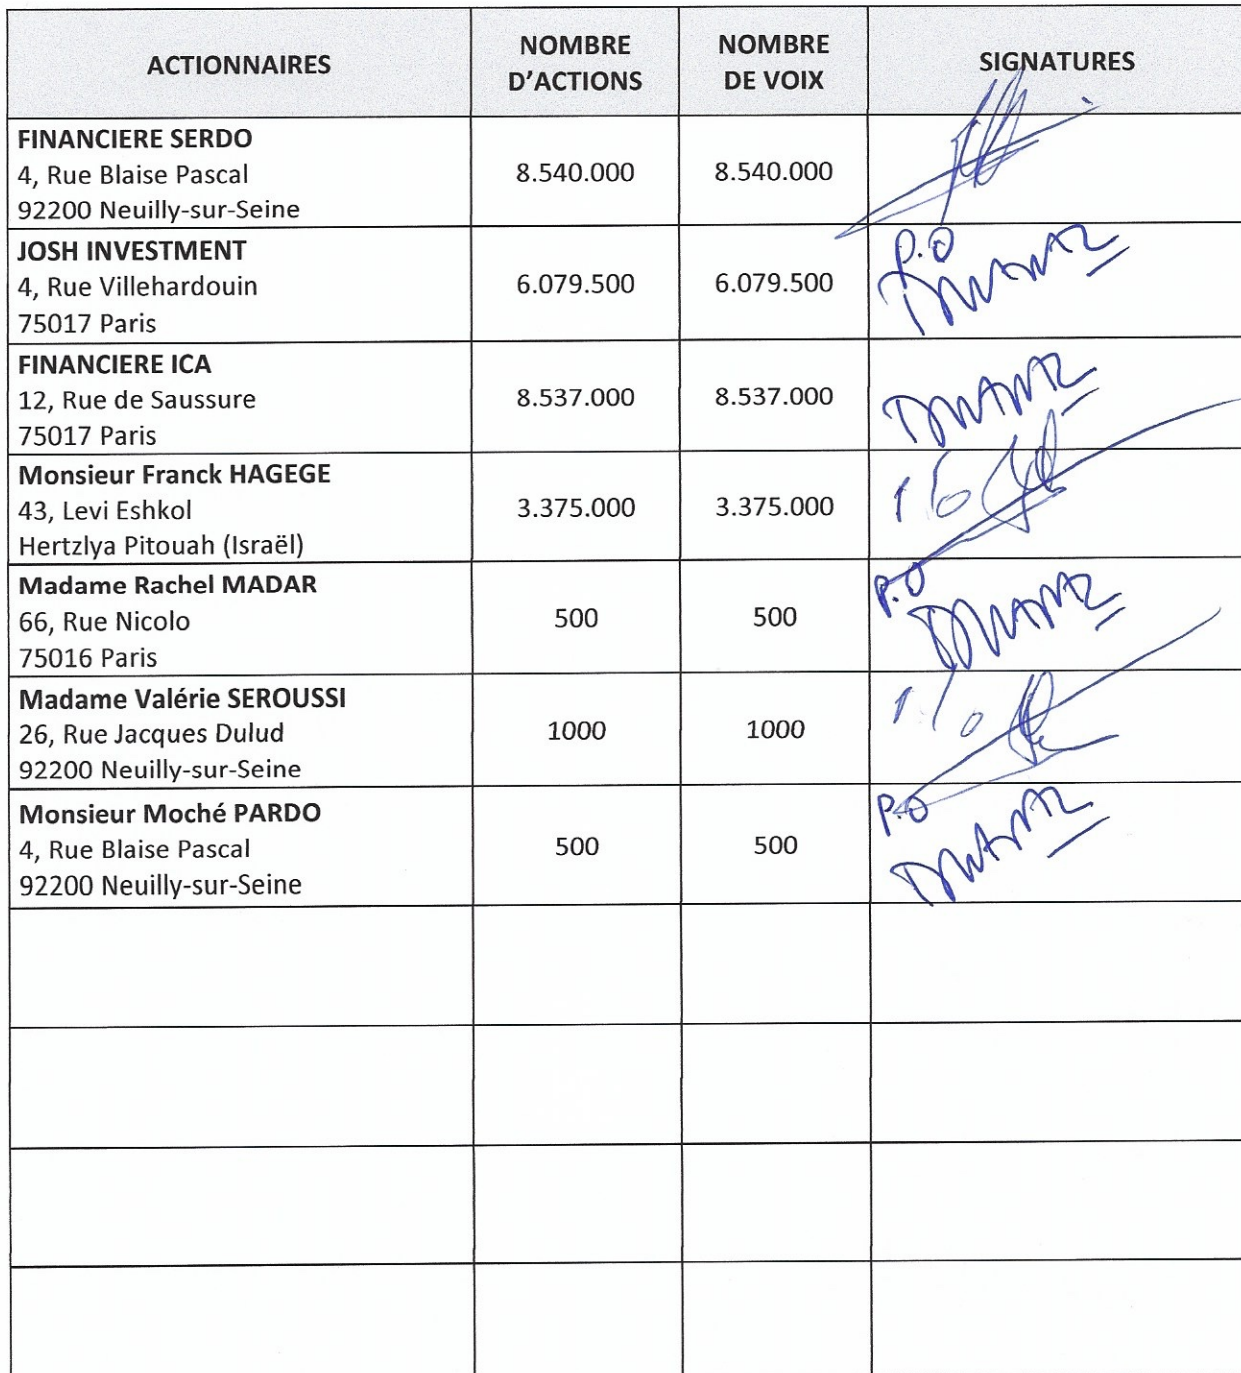 ACTIONNAIRES
NOMBRE
D'ACTIONS
NOMBRE
DE VOIX
SIGNATURES
FINANCIERE SERDO
4, Rue Blaise Pascal
92200 Neuilly-sur-Seine
8.540.000
8.540.000
JOSH INVESTMENT
4, Rue Villehardouin
75017 Paris
6.079.500
6.079.500
P.O
FINANCIERE ICA
12, Rue de Saussure
75017 Paris
8.537.000
8.537.000
Monsieur Franck HAGEGE
43, Levi Eshkol
Hertzlya Pitouah (Israël)
3.375.000
3.375.000
Madame Rachel MADAR
66, Rue Nicolo
75016 Paris
500
500
P.O
Madame Valérie SEROUSSI
26, Rue Jacques Dulud
92200 Neuilly-sur-Seine
1000
1000
Monsieur Moché PARDO
4, Rue Blaise Pascal
92200 Neuilly-sur-Seine
500
500
P.O